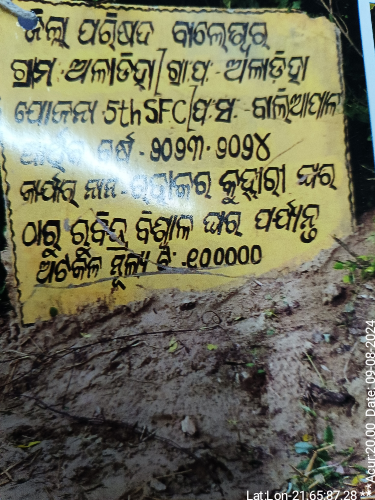 ଜିଲ୍ଲା ପରିଷଦ ବାଲେଶ୍ୱର
ଗ୍ରାମ ଅଳାଡିହା/ଗ୍ରା.ପ. ଅଳାଡିହା
ଯୋଜନା 5th SFC/ପ.ସ. ବାଲିଆପାଳ
ଆର୍ଥିକ ବର୍ଷ - ୨୦୨୩-୨୦୨୪
କାର୍ଯ୍ୟର ନାମ କୁହାରୀ ଘର
ଠାରୁ ରବିନ୍ଦ୍ର ବିଶ୍ୱାଳ ଘର ପର୍ଯ୍ୟନ୍ତ
ଅଟକଳ ମୂଲ୍ୟ ଟ: ୧୦୦୦୦୦
Lat:Lon-21.65:87.28 *** Acur:20.00 Date: 09-08-2024